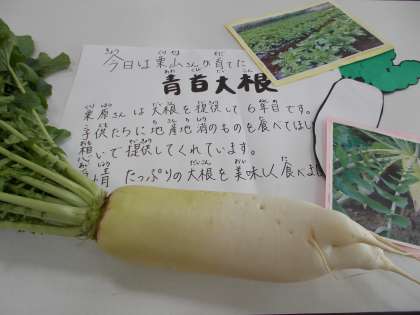 今日は栗山さんの育てた
青首大根
栗原さんは大根を提供して6年目です。
子供たちに地産地消のものを食べてほし
いで提供してくれています。
たっぷりの大根を美味しく食べま